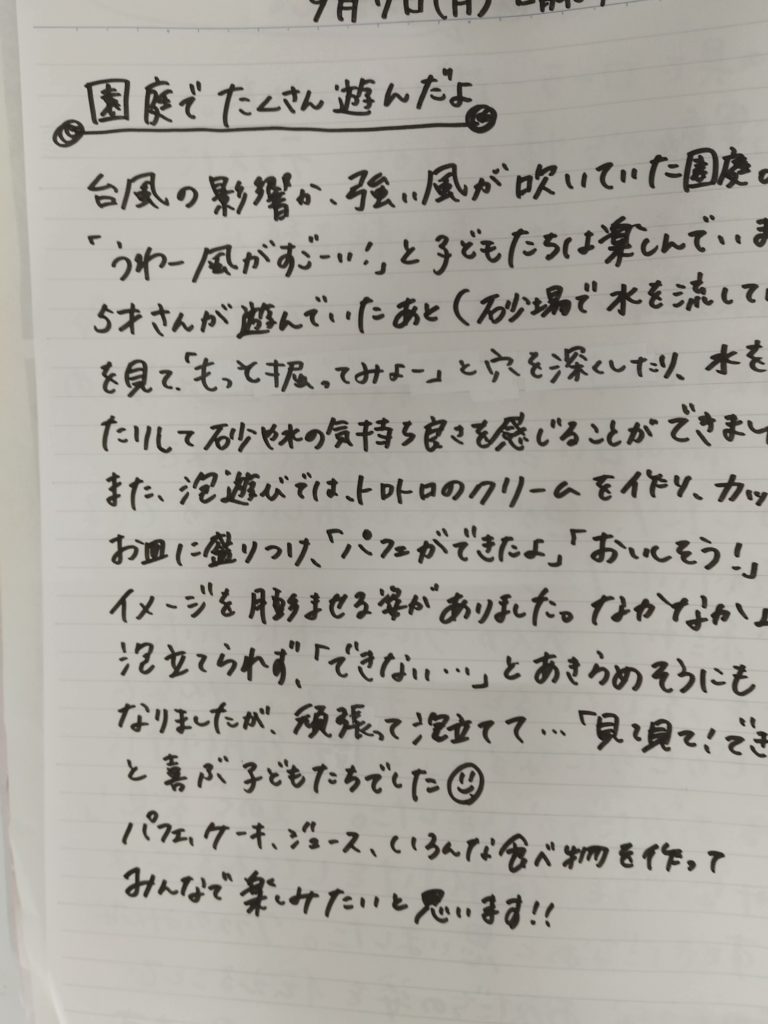 9月7日(月)
園庭でたくさん遊んだよ
台風の影響か、強い風が吹いていた園庭
「うわー風がすごーい!」と子どもたちは楽しんでいま
5才さんが遊んでいたあと(砂場で水を流してい
を見て、「もっと掘ってみよー」と穴を深くしたり、水を
たりして砂や水の気持ち良さを感じることができまし
また、泡遊びでは、トロトロのクリームを作り、カッ
お皿に盛りつけ、「パフェができたよ」「おいしそう!」
イメージを膨ませる姿がありました。なかなか
泡立てられず、「できない…」とあきらめそうにも
なりましたが、頑張って泡立てて…「見て見て!でき
と喜ぶ子どもたちでした
パフェ、ケーキ、ジュース、いろんな食べ物を作って
みんなで楽しみたいと思います!!